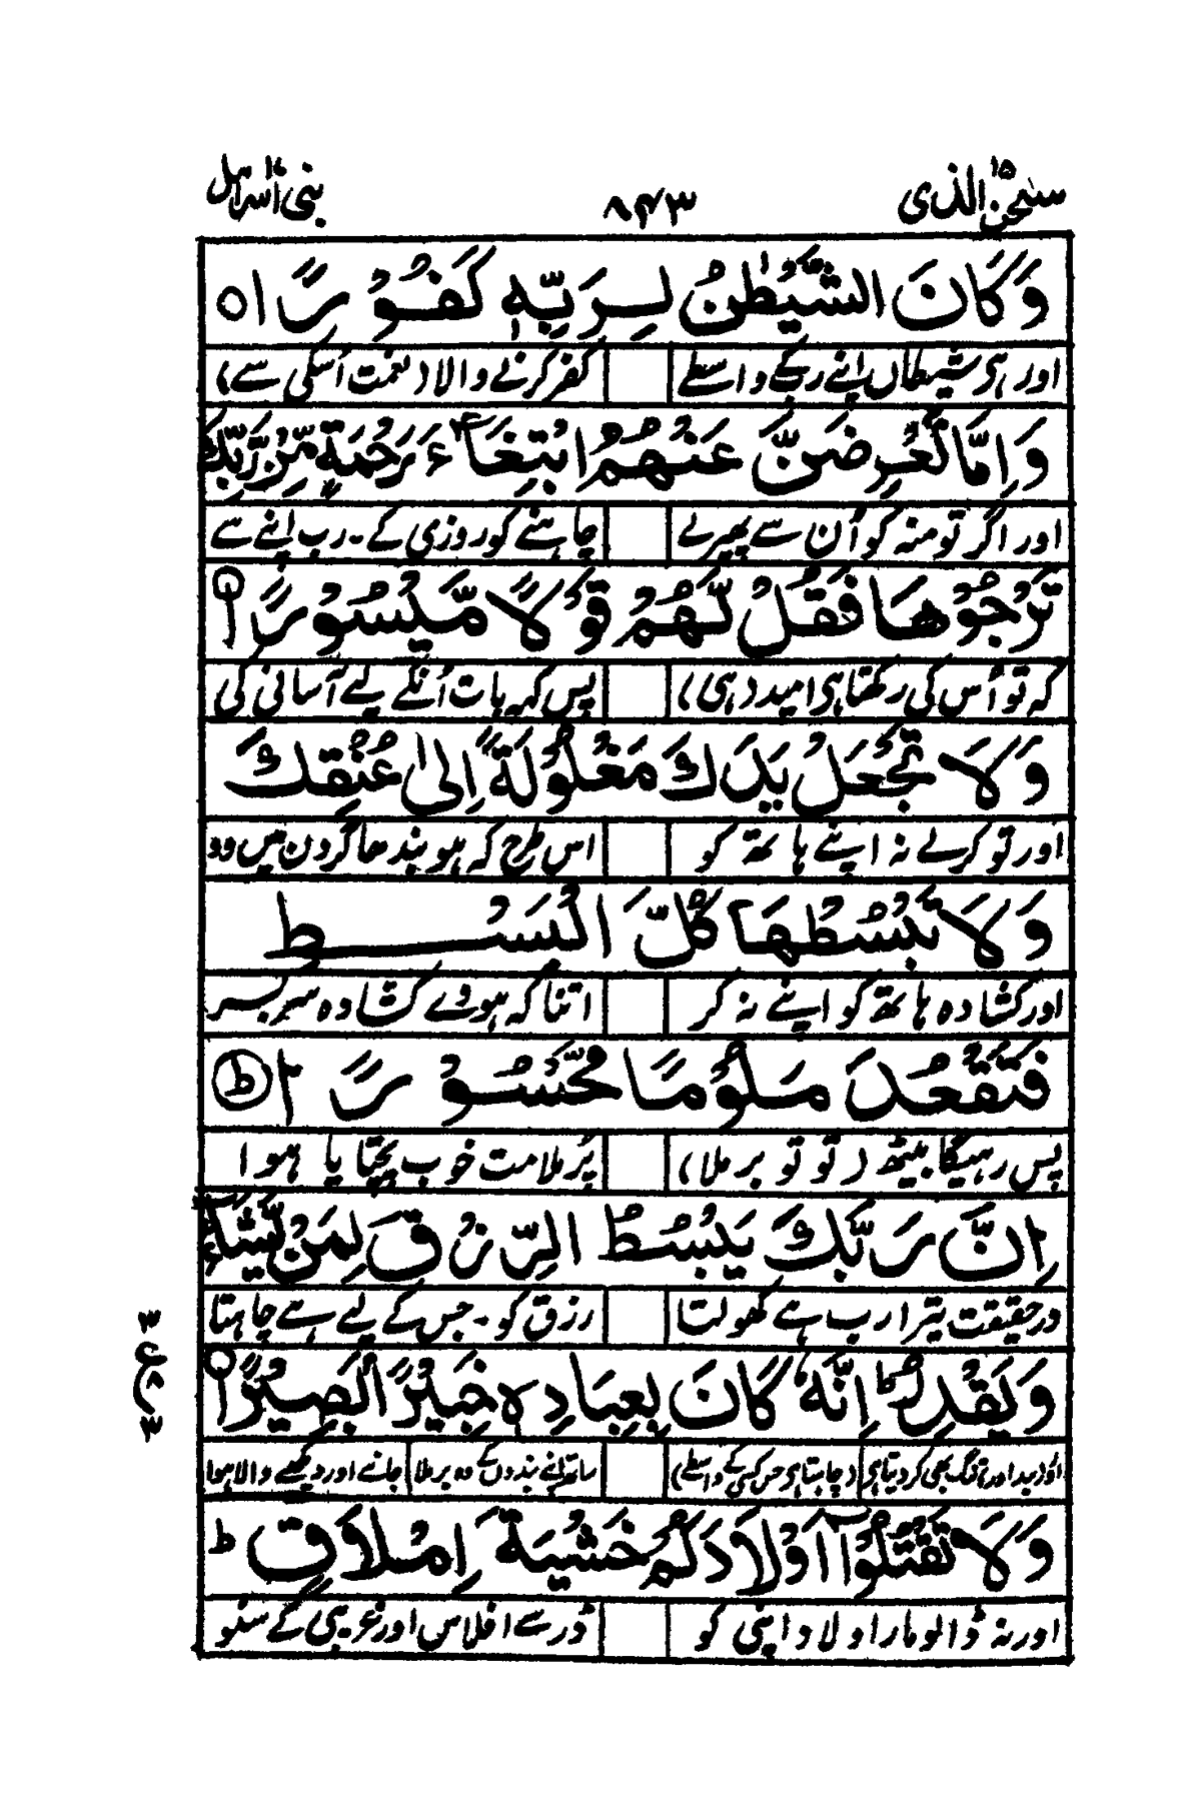 سبحٰن الذی ۱۵
۸۴۳
بنی اسرآئیل ۱۷
وَكَانَ الشَّيْطٰنُ لِرَبِّهٖ كَفُوْرًا ○
اور ہی شیطاں اپنے رب کے واسطے کفر کرنے والا (نعمت اُسکی سے)
وَاِمَّا تُعْرِضَنَّ عَنْهُمُ ابْتِغَآءَ رَحْمَةٍ مِّنْ رَّبِّكَ
اور اگر تو منہ کو اُن سے پھیرلے چاہنے کو روزی کے ۔ رب اپنے سے
تَرْجُوْهَا فَقُلْ لَّهُمْ قَوْلًا مَّيْسُوْرًا
کہ تو اُس کی رکھتا ہی امید (ہی) پس کہہ بات اُنکے لیے آسانی کی
وَلَا تَجْعَلْ يَدَكَ مَغْلُوْلَةً اِلٰى عُنُقِكَ
اور تو کرلے نہ اپنے ہاتھ کو اس طرح کہ ہو بندھا گردن میں وہ
وَلَا تَبْسُطْهَا كُلَّ الْبَسْطِ
اور کشادہ ہاتھ کو اپنے نہ کر اتنا کہ ہووے کشادہ سربسر
فَتَقْعُدَ مَلُوْمًا مَّحْسُوْرًا ط
پس رہیگا بیٹھ (تو تو برملا) پُر ملامت خوب پچتایا ہوا
اِنَّ رَبَّكَ يَبْسُطُ الرِّزْقَ لِمَنْ يَّشَآءُ
درحقیقت تیرا رب ہے کھولتا رزق کو ۔ جس کے لیے ہے چاہتا
وَيَقْدِرُ ط اِنَّهٗ كَانَ بِعِبَادِهٖ خَبِيْرًاۢ بَصِيْرًا
۳ ع ۸ ۳
اور تنگ بھی کر دیتا ہی (چاہتا ہی جس کسی کے واسطے) ساتھ اپنے بندوں کے وہ برملا جانے اور دیکھنے والا ہوا
وَلَا تَقْتُلُوْٓا اَوْلَادَكُمْ خَشْيَةَ اِمْلَاقٍ ط
اور نہ ڈالو مار اولاد اپنی کو ڈر سے افلاس اور غریبی کے سنو